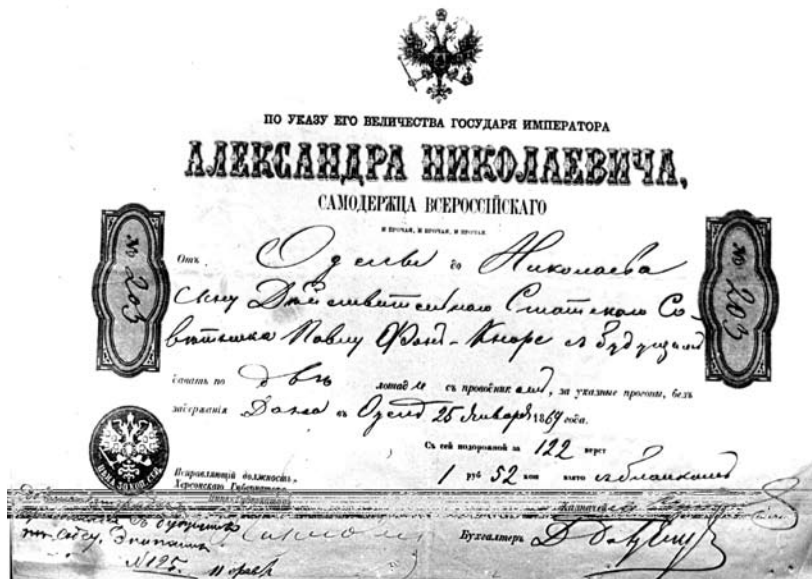 ПО УКАЗУ ЕГО ВЕЛИЧЕСТВА ГОСУДАРЯ ИМПЕРАТОРА
АЛЕКСАНДРА НИКОЛАЕВИЧА,
САМОДЕРЖЦА ВСЕРОССІЙСКАГО
И ПРОЧАЯ, И ПРОЧАЯ, И ПРОЧАЯ.
№ 203
№ 203
Отъ Одессы до Николаева
сыну Действительнаго Статскаго Со-
вѣтника Павлу Фонъ-Кнорe съ будущимъ
давать по двѣ лошади съ проводникомъ, за указные прогоны, безъ
задержанія Дана въ Одессѣ 25 Января 1869 года.
Съ сей подорожной за 122 верст
1 руб 52 коп взято съ бланкомъ
Исправляющій должность
Херсонскаго Губернатора
Казначей
съ будущимъ
Бухгалтеръ
№ 125